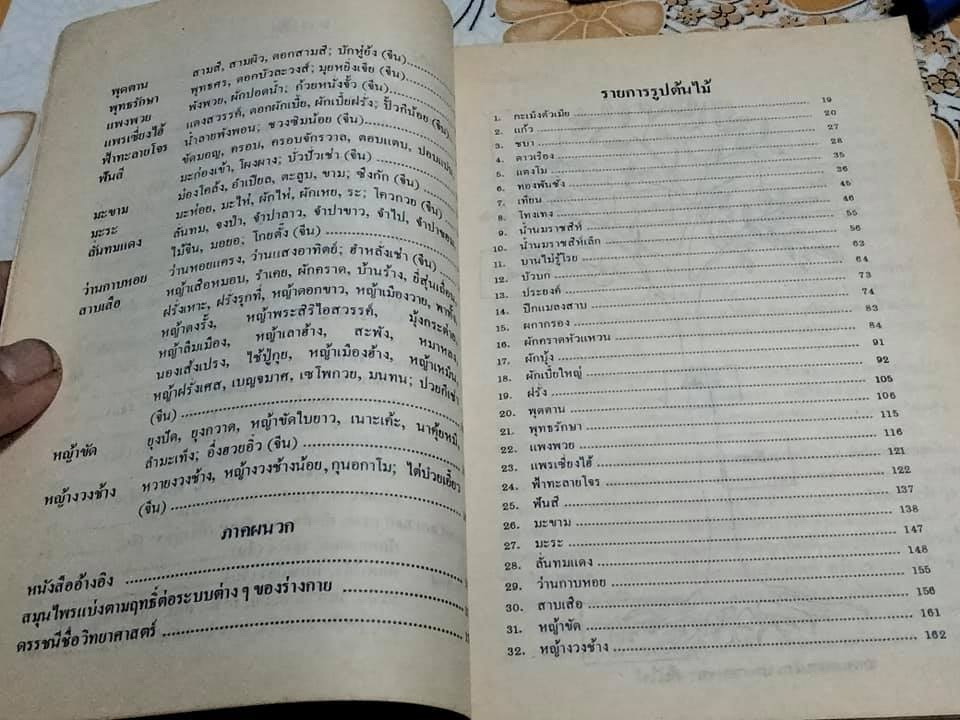 สามสี, สามผิว, ดอกสามสี; บักหู่ย้ง (จีน)
พุดตาน
พุทธศร, ดอกบัวละวงส์; มุยหยิ่งเจีย (จีน)
พุทธรักษา
พังพวย, ผักปอดน้ำ; ก้วยหนังจั้ว (จีน)
แพงพวย
แดงสวรรค์, ดอกผักเบี้ย, ผักเบี้ยฝรั่ง; ปั้วกีน้อย (จีน)
แพรเซี่ยงไฮ้
น้ำลายพังพอน; ชวงซิมน้อย (จีน)
ฟ้าทะลายโจร
ขัดมอญ, ครอบ, ครอบจักรวาล, ตอบแตบ, ปอบแปบ
ฟันสี
มะก่องเข้า, โผงผาง; บั่วปั๋วเช่า (จีน)
ม่องโคล้ง, อำเปียล, ตะลูบ, ขาม; ซึงกัก (จีน)
มะขาม
มะห่อย, มะไห่, ผักไห่, ผักเหย, ระ; โควกวย (จีน)
มะระ
ลั่นทม, จงป่า, จำปาลาว, จำปาขาว, จำไป, จำปาขอม
ลั่นทมแดง
ไม้จีน, มอยอ; โกยตั้ง (จีน)
ว่านกาบหอย
ว่านหอยแครง, ว่านแสงอาทิตย์; ฮำหลั่งเช่า (จีน)
สาบเสือ
หญ้าเสือหมอบ, รำเคย, ผักคราด, บ้านร้าง,
ฝรั่งเหาะ, ฝรั่งรุกที่, หญ้าดอกขาว, หญ้าเมืองวาย,
หญ้าดงรั้ง, หญ้าพระสิริไอสวรรค์, มุ้งกระต่าย,
หญ้าลืมเมือง, หญ้าเลาฮ้าง, สะพัง, หมาหลง,
นองเส้งเปรง, ไช้ปู่กุย, หญ้าเมืองฮ้าง, หญ้าเหมัน,
หญ้าฝรั่งเศส, เบญจมาศ, เซโพกวย, มนทน; ปวยกีเช่า
(จีน)
หญ้าขัด
ยุงปัด, ยุงกวาด, หญ้าขัดใบยาว, เนาะเค้ะ, นาคุ้ยหมี
ลำมะเท้ง; อึ่งฮวยอิ๋ว (จีน)
หญ้างวงช้าง
หวายงวงช้าง, หญ้างวงช้างน้อย, กุนอกาโม; ไต่บ๋วยเอี้ยว
(จีน)
ภาคผนวก
หนังสืออ้างอิง
สมุนไพรแบ่งตามฤทธิ์ต่อระบบต่าง ๆ ของร่างกาย
ดรรชนีชื่อวิทยาศาสตร์
รายการรูปต้นไม้
1. กะเม็งตัวเมีย 19
2. แก้ว 20
3. ชบา 27
4. ดาวเรือง 28
5. แตงโม 35
6. ทองพันชั่ง 36
7. เทียน 45
8. โทงเทง 46
9. น้ำนมราชสีห์ 55
10. น้ำนมราชสีห์เล็ก 56
11. บานไม่รู้โรย 63
12. บัวบก 64
13. ประยงค์ 73
14. ปีกแมลงสาบ 74
15. ผกากรอง 83
16. ผักคราดหัวแหวน 84
17. ผักบุ้ง 91
18. ผักเบี้ยใหญ่ 92
19. ฝรั่ง 105
20. พุดตาน 106
21. พุทธรักษา 115
22. แพงพวย 116
23. แพรเซี่ยงไฮ้ 121
24. ฟ้าทะลายโจร 122
25. ฟันสี 137
26. มะขาม 138
27. มะระ 147
28. ลั่นทมแดง 148
29. ว่านกาบหอย 155
30. สาบเสือ 156
31. หญ้าขัด 161
32. หญ้างวงช้าง 162